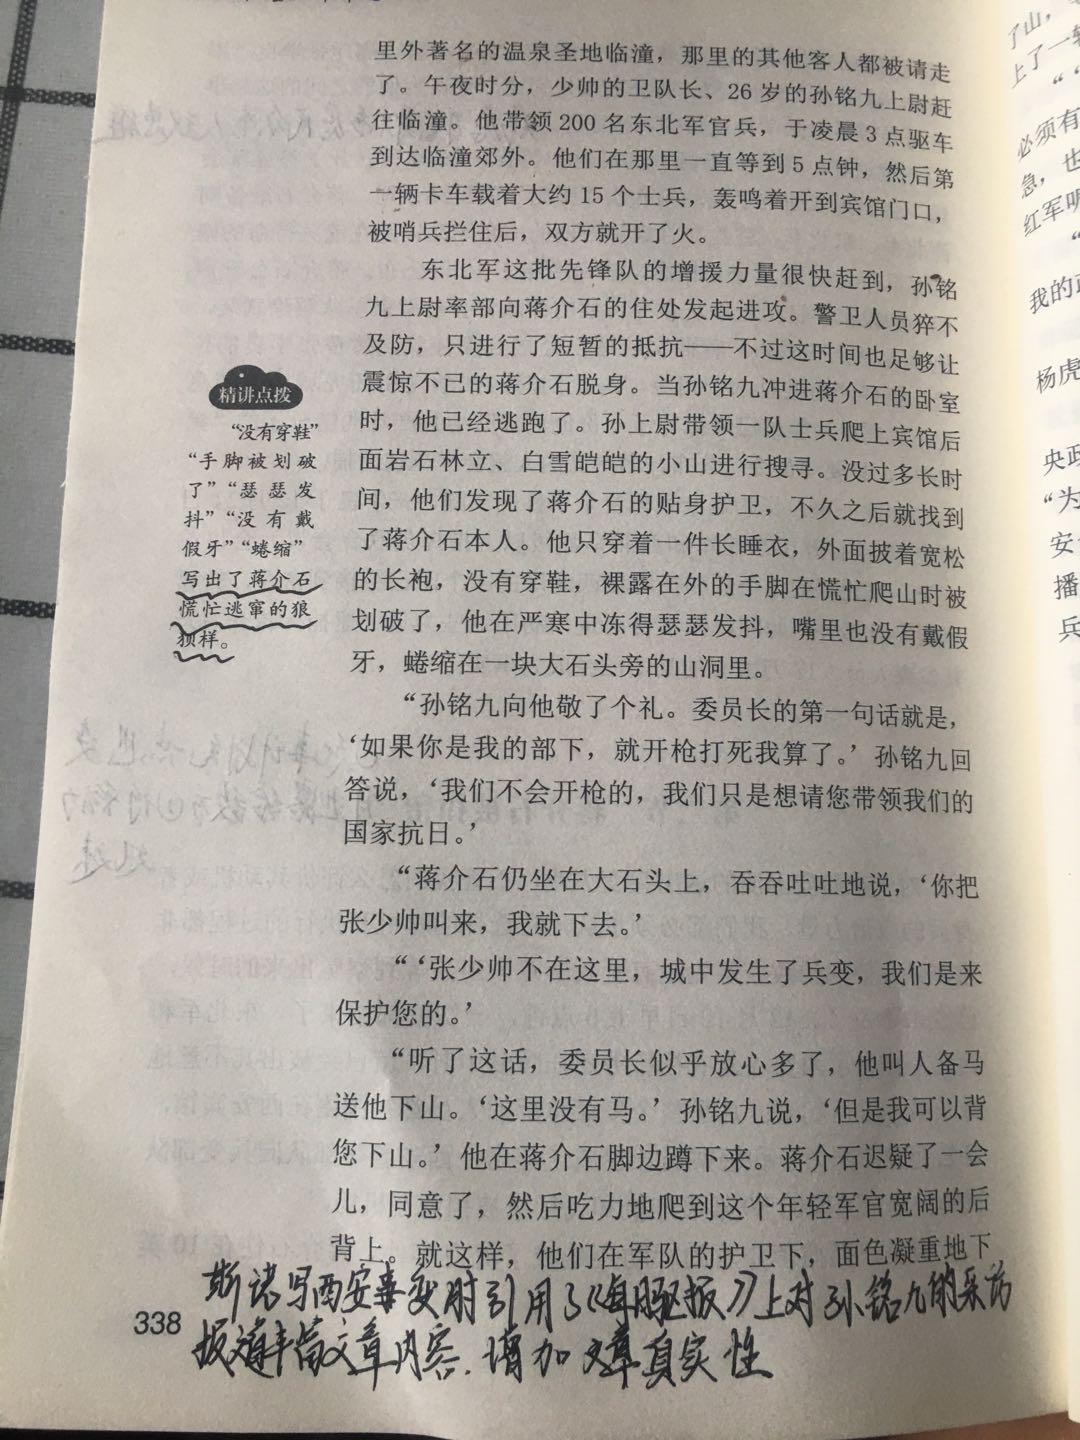 里外著名的温泉圣地临潼，那里的其他客人都被请走
了。午夜时分，少帅的卫队长、26岁的孙铭九上尉赶
往临潼。他带领200名东北军官兵，于凌晨3点驱车
到达临潼郊外。他们在那里一直等到5点钟，然后第
一辆卡车载着大约15个士兵，轰鸣着开到宾馆门口，
被哨兵拦住后，双方就开了火。
东北军这批先锋队的增援力量很快赶到，孙铭
九上尉率部向蒋介石的住处发起进攻。警卫人员猝不
及防，只进行了短暂的抵抗——不过这时间也足够让
震惊不已的蒋介石脱身。当孙铭九冲进蒋介石的卧室
时，他已经逃跑了。孙上尉带领一队士兵爬上宾馆后
面岩石林立、白雪皑皑的小山进行搜寻。没过多长时
间，他们发现了蒋介石的贴身护卫，不久之后就找到
了蒋介石本人。他只穿着一件长睡衣，外面披着宽松
的长袍，没有穿鞋，裸露在外的手脚在慌忙爬山时被
划破了，他在严寒中冻得瑟瑟发抖，嘴里也没有戴假
牙，蜷缩在一块大石头旁的山洞里。
“孙铭九向他敬了个礼。委员长的第一句话就是，
‘如果你是我的部下，就开枪打死我算了。’孙铭九回
答说，‘我们不会开枪的，我们只是想请您带领我们的
国家抗日。’
“蒋介石仍坐在大石头上，吞吞吐吐地说，‘你把
张少帅叫来，我就下去。’
“‘张少帅不在这里，城中发生了兵变，我们是来
保护您的。’
“听了这话，委员长似乎放心多了，他叫人备马
送他下山。‘这里没有马。’孙铭九说，‘但是我可以背
您下山。’他在蒋介石脚边蹲下来。蒋介石迟疑了一会
儿，同意了，然后吃力地爬到这个年轻军官宽阔的后
背上。就这样，他们在军队的护卫下，面色凝重地下
精讲点拨
“没有穿鞋”
“手脚被划破
了”“瑟瑟发
抖”“没有戴
假牙”“蜷缩”
写出了蒋介石
慌忙逃窜的狼
狈样。
斯诺写西安事变时引用了《每日先驱报》上对孙铭九的采访
报道丰富文章内容，增加文章真实性
338
了山，
上了一辆
必须有
急，也
红军听
我的正
杨虎
央政
“为
安
播
兵